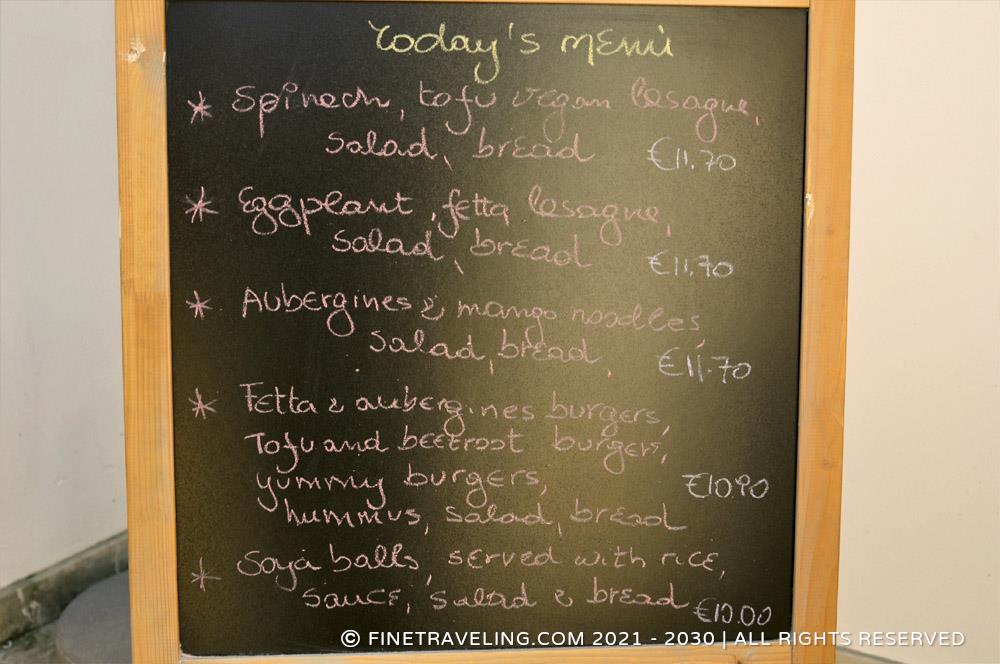 Today's menù
* Spinach, tofu vegan lasagne,
salad, bread €11.70
* Eggplant, fetta lasagne,
salad, bread €11.70
* Aubergines & mango noodles,
salad, bread, €11.70
* Fetta & aubergines burgers,
Tofu and beetroot burgers,
yummy burgers, €10.90
hummus, salad, bread
* Soya balls, served with rice,
sauce, salad & bread €10.00
© FINETRAVELING.COM 2021 - 2030 | ALL RIGHTS RESERVED